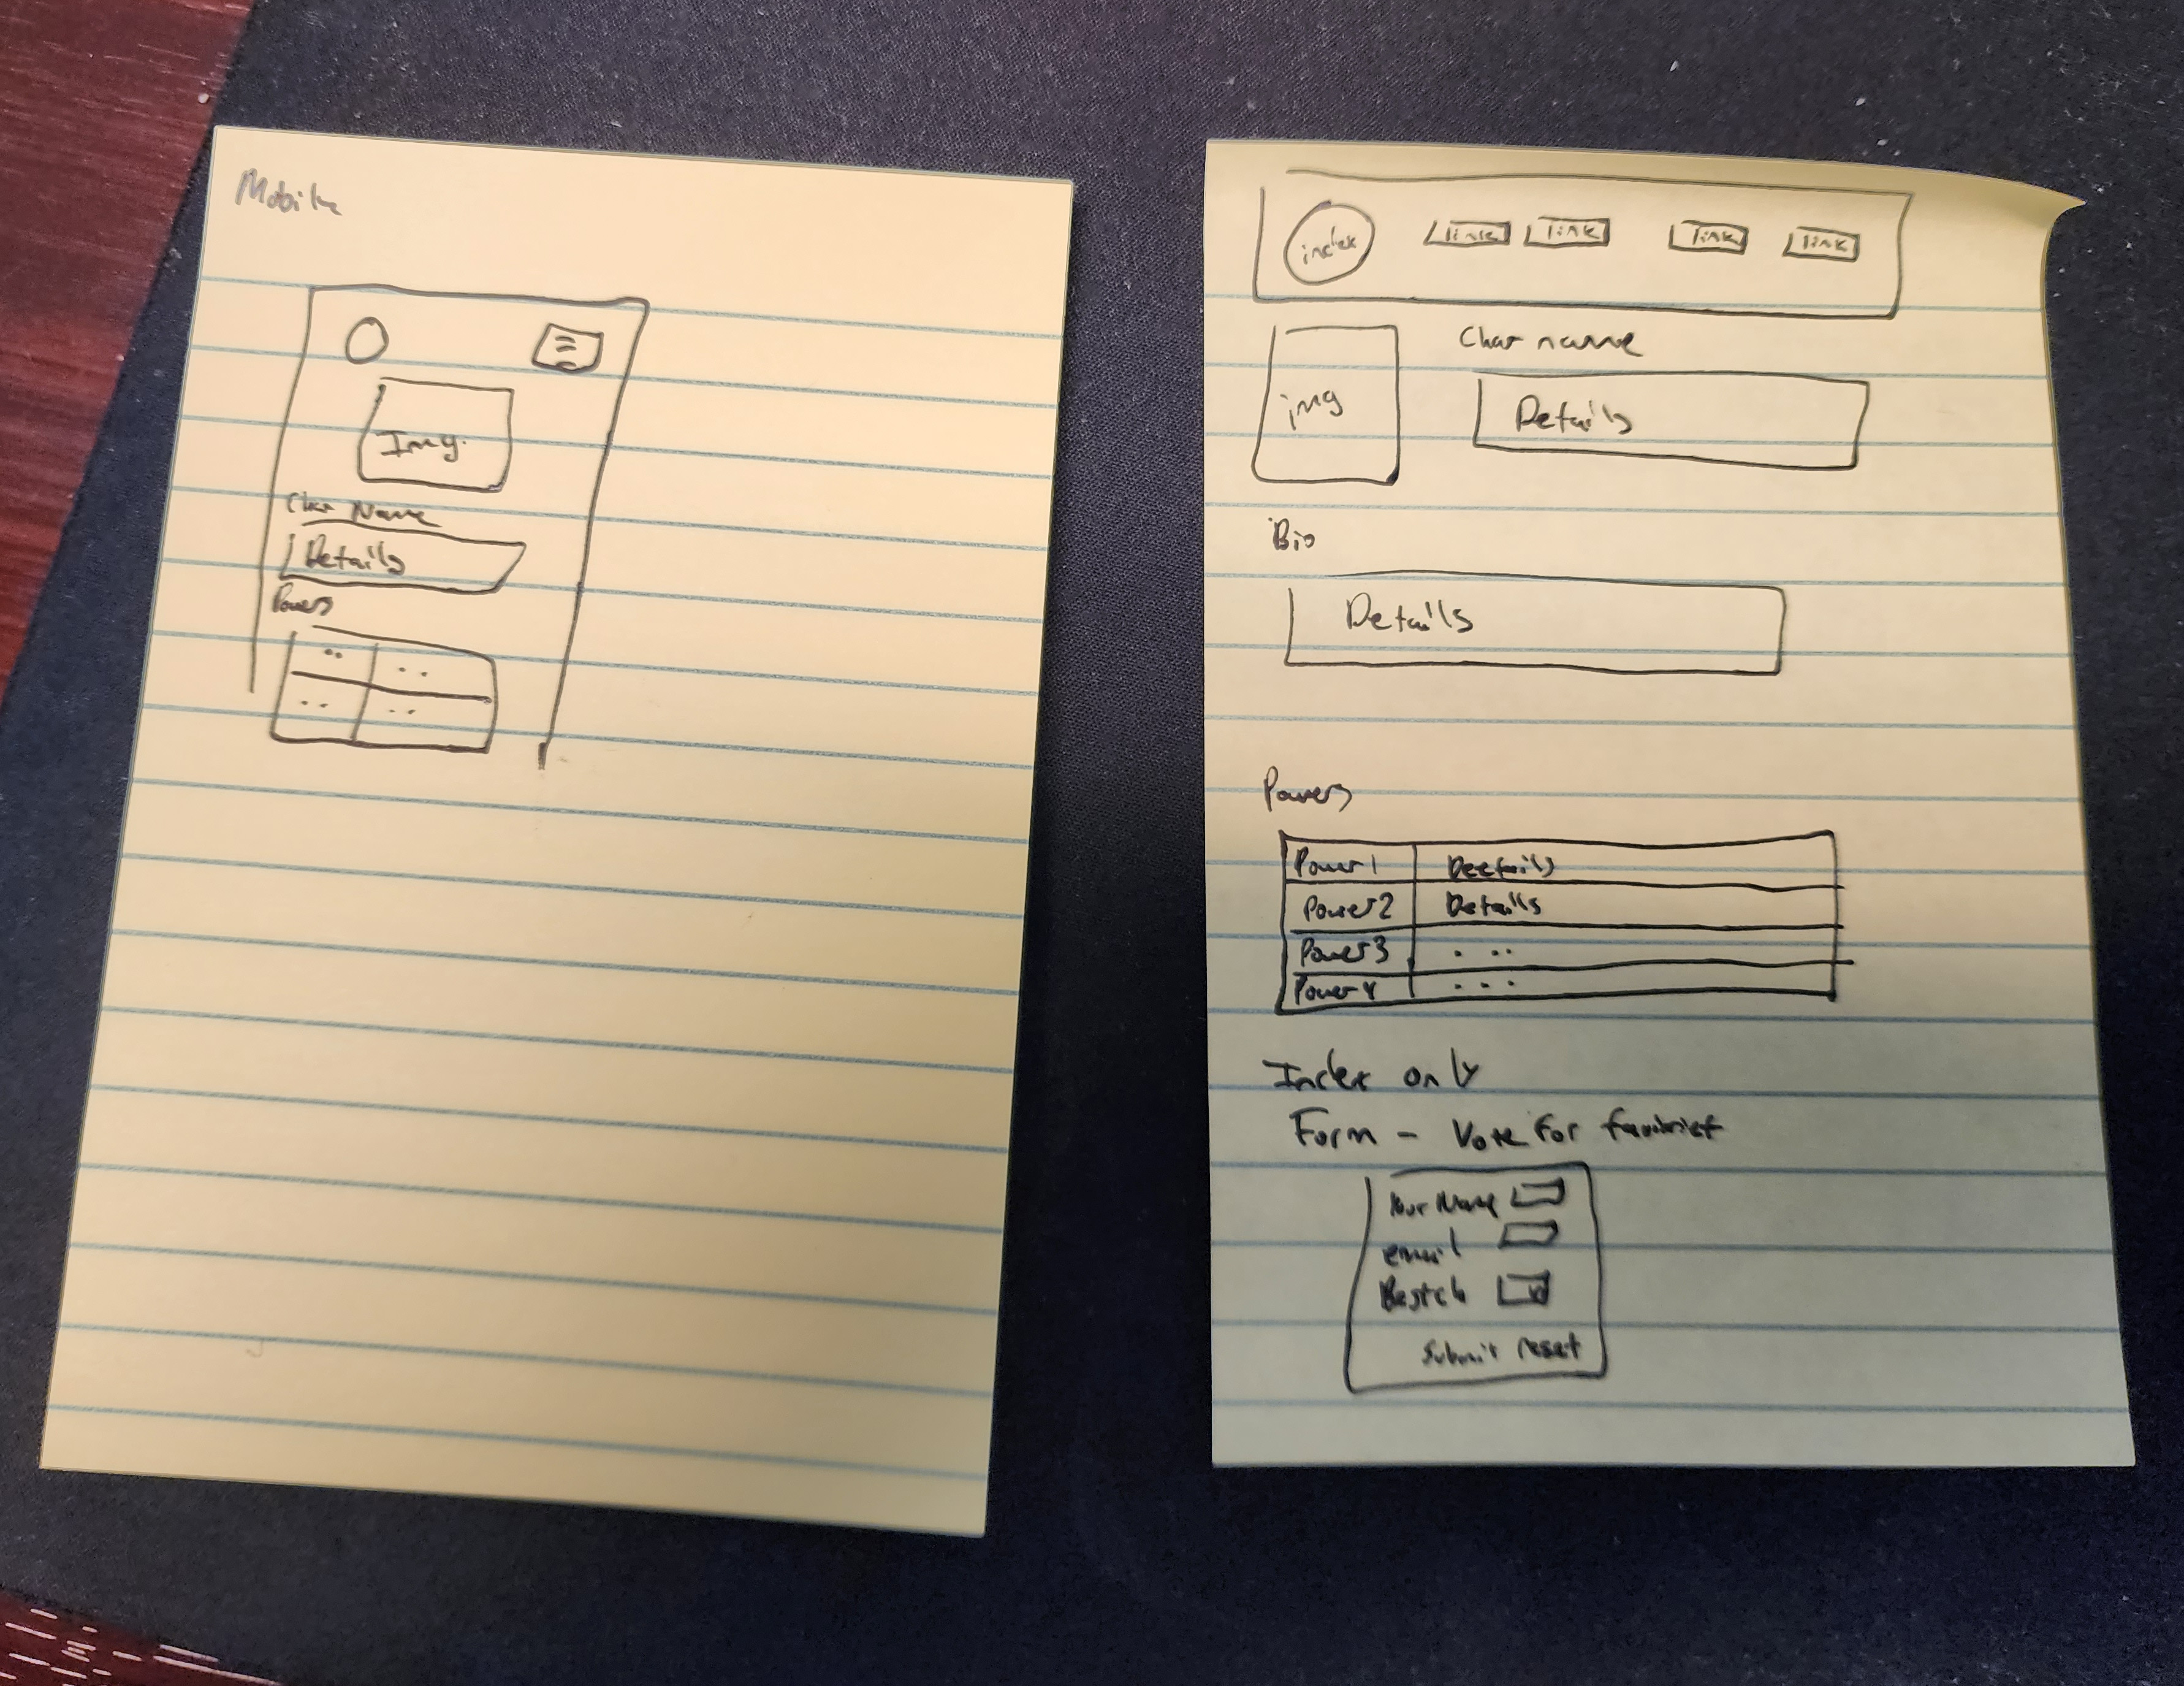 Mobile
Img.
Char Name
Details
Powers
.. ..
.. ..
index link link link link
Char name
img
Details
Bio
Details
Powers
Power 1 Deetails
Power 2 Details
Power 3 . . .
Power 4 . . .
Index only
Form - Vote for
Your Name
email
Best ch
Submit reset